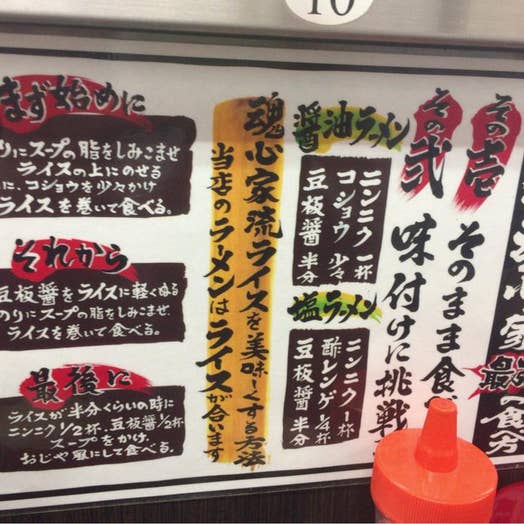 10
心家
最
の食べ方
その壱
そのまま食べ
その弐
味付けに挑戦
醤油ラーメン
ニンニク 一杯
コショウ 少々
豆板醤 半分
塩ラーメン
ニンニク 一杯
酢レンゲ 1/4杯
豆板醤 半分
魂心家流ライスを美味しくする方法
当店のラーメンはライスが合います
まず始めに
のりにスープの脂をしみこませ
ライスの上にのせる
に、コショウを少々かけ
ライスを巻いて食べる。
それから
豆板醤をライスに軽くぬる
のりにスープの脂をしみこませ
ライスを巻いて食べる。
最後に
ライスが半分くらいの時に
ニンニク1/2杯、豆板醤1/2杯
スープをかけ、
おじや風にして食べる。